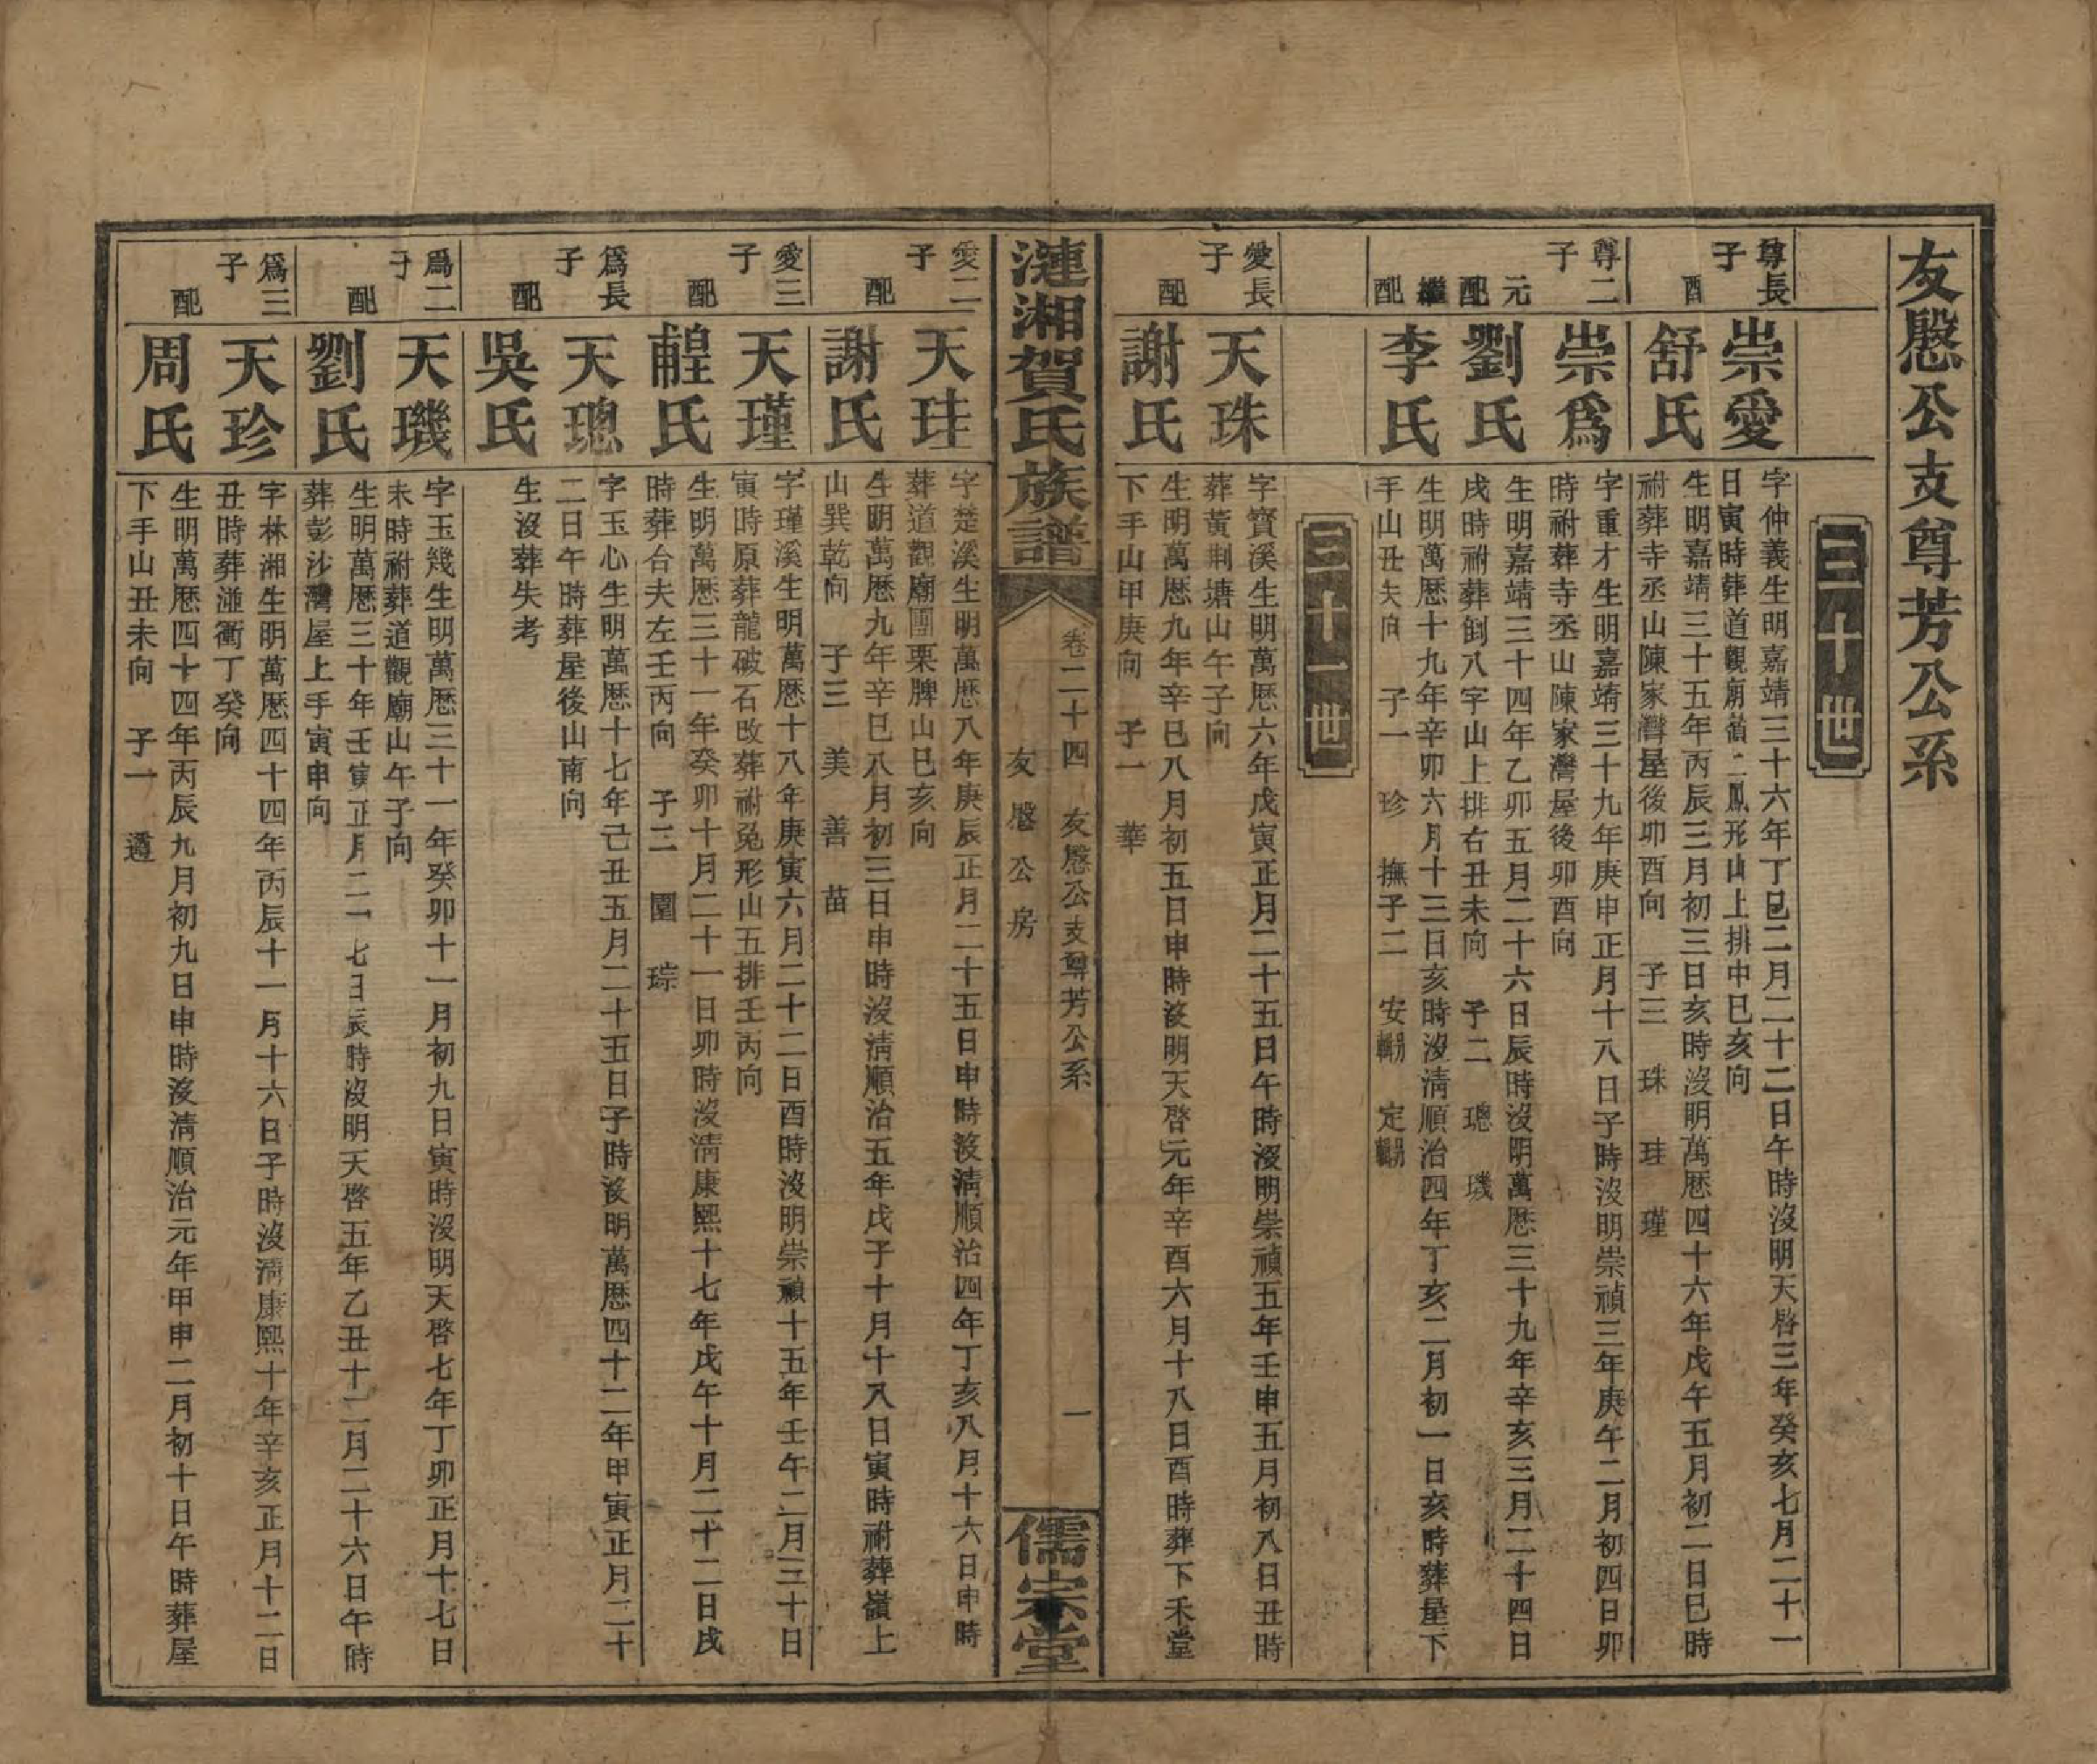 友慇公支尊芳公系
三十世
尊長子 崇愛
字仲義生明嘉靖三十六年丁巳二月二十二日午時沒明天啓三年癸亥七月二十一
日寅時葬道觀廟黃二鳳形山上排中巳亥向
配 舒氏
生明嘉靖三十五年丙辰三月初三日亥時沒明萬歷四十六年戊午五月初二日巳時
祔葬寺丞山陳家灣屋後卯酉向 子三 珠 珪 瑾
尊二子 崇爲
字重才生明嘉靖三十九年庚申正月十八日子時沒明崇禎三年庚午二月初四日卯
時祔葬寺丞山陳家灣屋後卯酉向
元配 劉氏
生明嘉靖三十四年乙卯五月二十六日辰時沒明萬歷三十九年辛亥三月二十四日
戌時祔葬倒八字山上排右丑未向 子二 璁 璣
繼配 李氏
生明萬歷十九年辛卯六月十三日亥時沒清順治四年丁亥二月初一日亥時葬屋下
手山丑矢向 子一 珍 撫子二 安 定
三十一世
愛長子 天珠
字寶溪生明萬歷六年戊寅正月二十五日午時沒明崇禎五年壬申五月初八日丑時
葬黃荆塘山午子向
配 謝氏
生明萬歷九年辛巳八月初五日申時沒明天啓元年辛酉六月十八日酉時葬下禾堂
下手山甲庚向 子一 華
漣湘賀氏族譜
卷二十四 友慇公支尊芳公系 一
友慇公房
儒宗堂
愛二子 天珪
字楚溪生明萬歷八年庚辰正月二十五日申時沒清順治四年丁亥八月十六日申時
葬道觀廟團栗脾山巳亥向
配 謝氏
生明萬歷九年辛巳八月初三日申時沒清順治五年戊子十月十八日寅時祔葬嶺上
山巽乾向 子三 美 善 苗
愛三子 天瑾
字瑾溪生明萬歷十八年庚寅六月二十二日酉時沒明崇禎十五年壬午二月三十日
寅時原葬龍破石改葬祔兔形山五排壬丙向
配 氏
生明萬歷三十一年癸卯十月二十一日卯時沒清康熙十七年戊午十月二十二日戌
時葬合夫左壬丙向 子二 圍 琮
爲長子 天璁
字玉心生明萬歷十七年己丑五月二十五日子時沒明萬歷四十二年甲寅正月二十
二日午時葬屋後山南向
配 吳氏
生沒葬失考
爲二子 天璣
字玉幾生明萬歷三十一年癸卯十一月初九日寅時沒明天啓七年丁卯正月十七日
未時祔葬道觀廟山午子向
配 劉氏
生明萬歷三十年壬寅正月二十七日辰時沒明天啓五年乙丑十二月二十六日午時
葬彭沙灣屋上手寅申向
爲三子 天珍
字林湘生明萬歷四十四年丙辰十一月十六日子時沒清康熙十年辛亥正月十二日
丑時葬湴衝丁癸向
配 周氏
生明萬歷四十四年丙辰九月初九日申時沒清順治元年甲申二月初十日午時葬屋
下手山丑未向 子一 遵